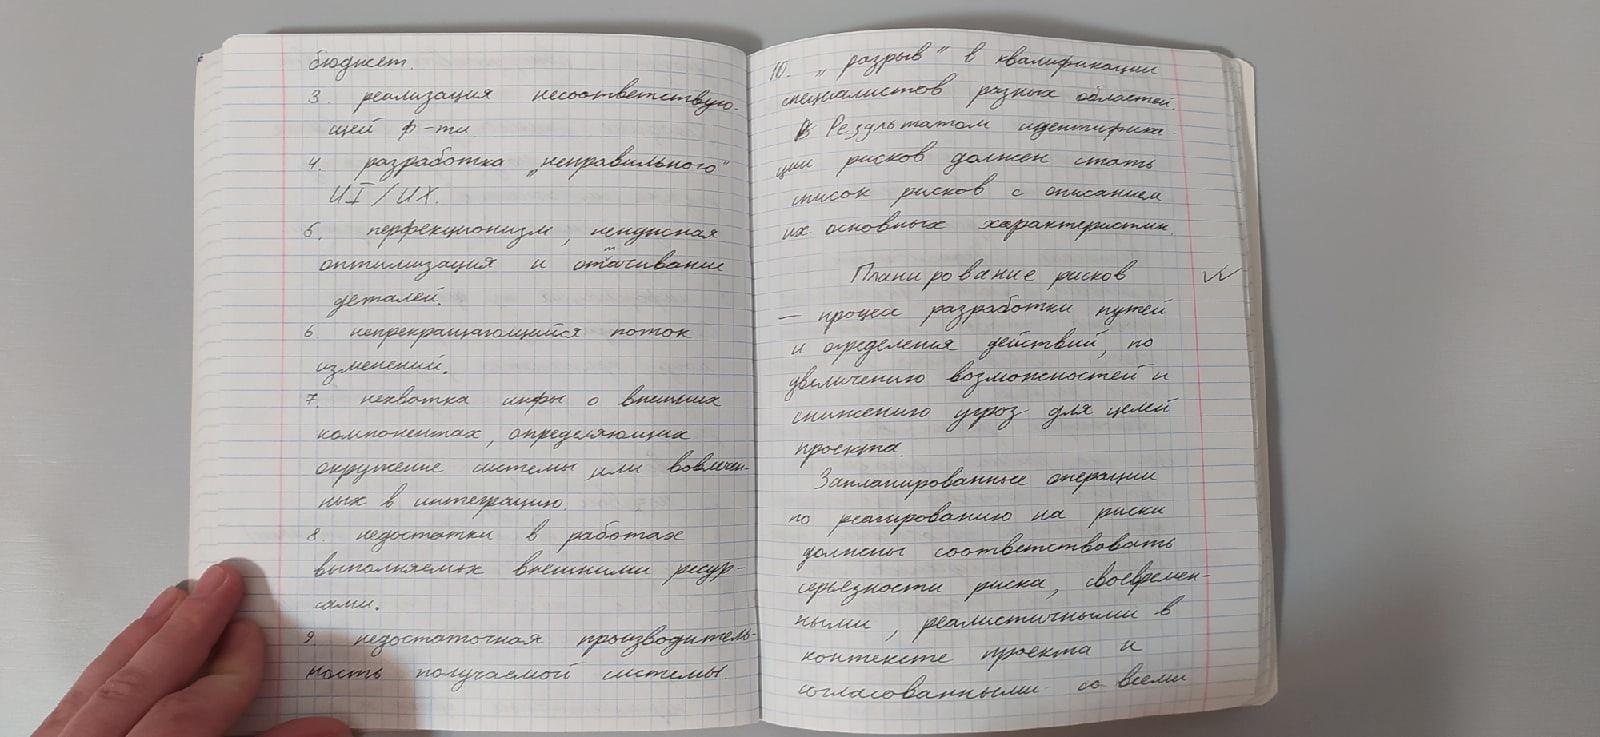 бюджет.
3. реализация несоответствую-
щей ф-ти
4. разработка „неправильного"
UI/UX.
5. перфекционизм, ненужная
оптимизация и оттачивание
деталей.
6 непрекращающийся поток
изменений.
7. нехватка инфы о внешних
компонентах, определяющих
окружение системы или вовлечен-
ных в интеграцию.
8. недостатки в работах
выполняемых внешними ресур-
сами.
9. недостаточная производитель-
ность получаемой системы.
10. „разрыв" в квалификации
специалистов разных областей.
Результатом идентифика
ции рисков должен стать
список рисков с описанием
их основных характеристик.
Планирование рисков
— процесс разработки путей
и определения действий, по
увеличению возможностей и
снижению угроз для целей
проекта
Запланированные операции
по реагированию на риски
должны соответствовать
серьёзности риска, своевремен-
ными, реалистичными в
контексте проекта и
согласованными со всеми